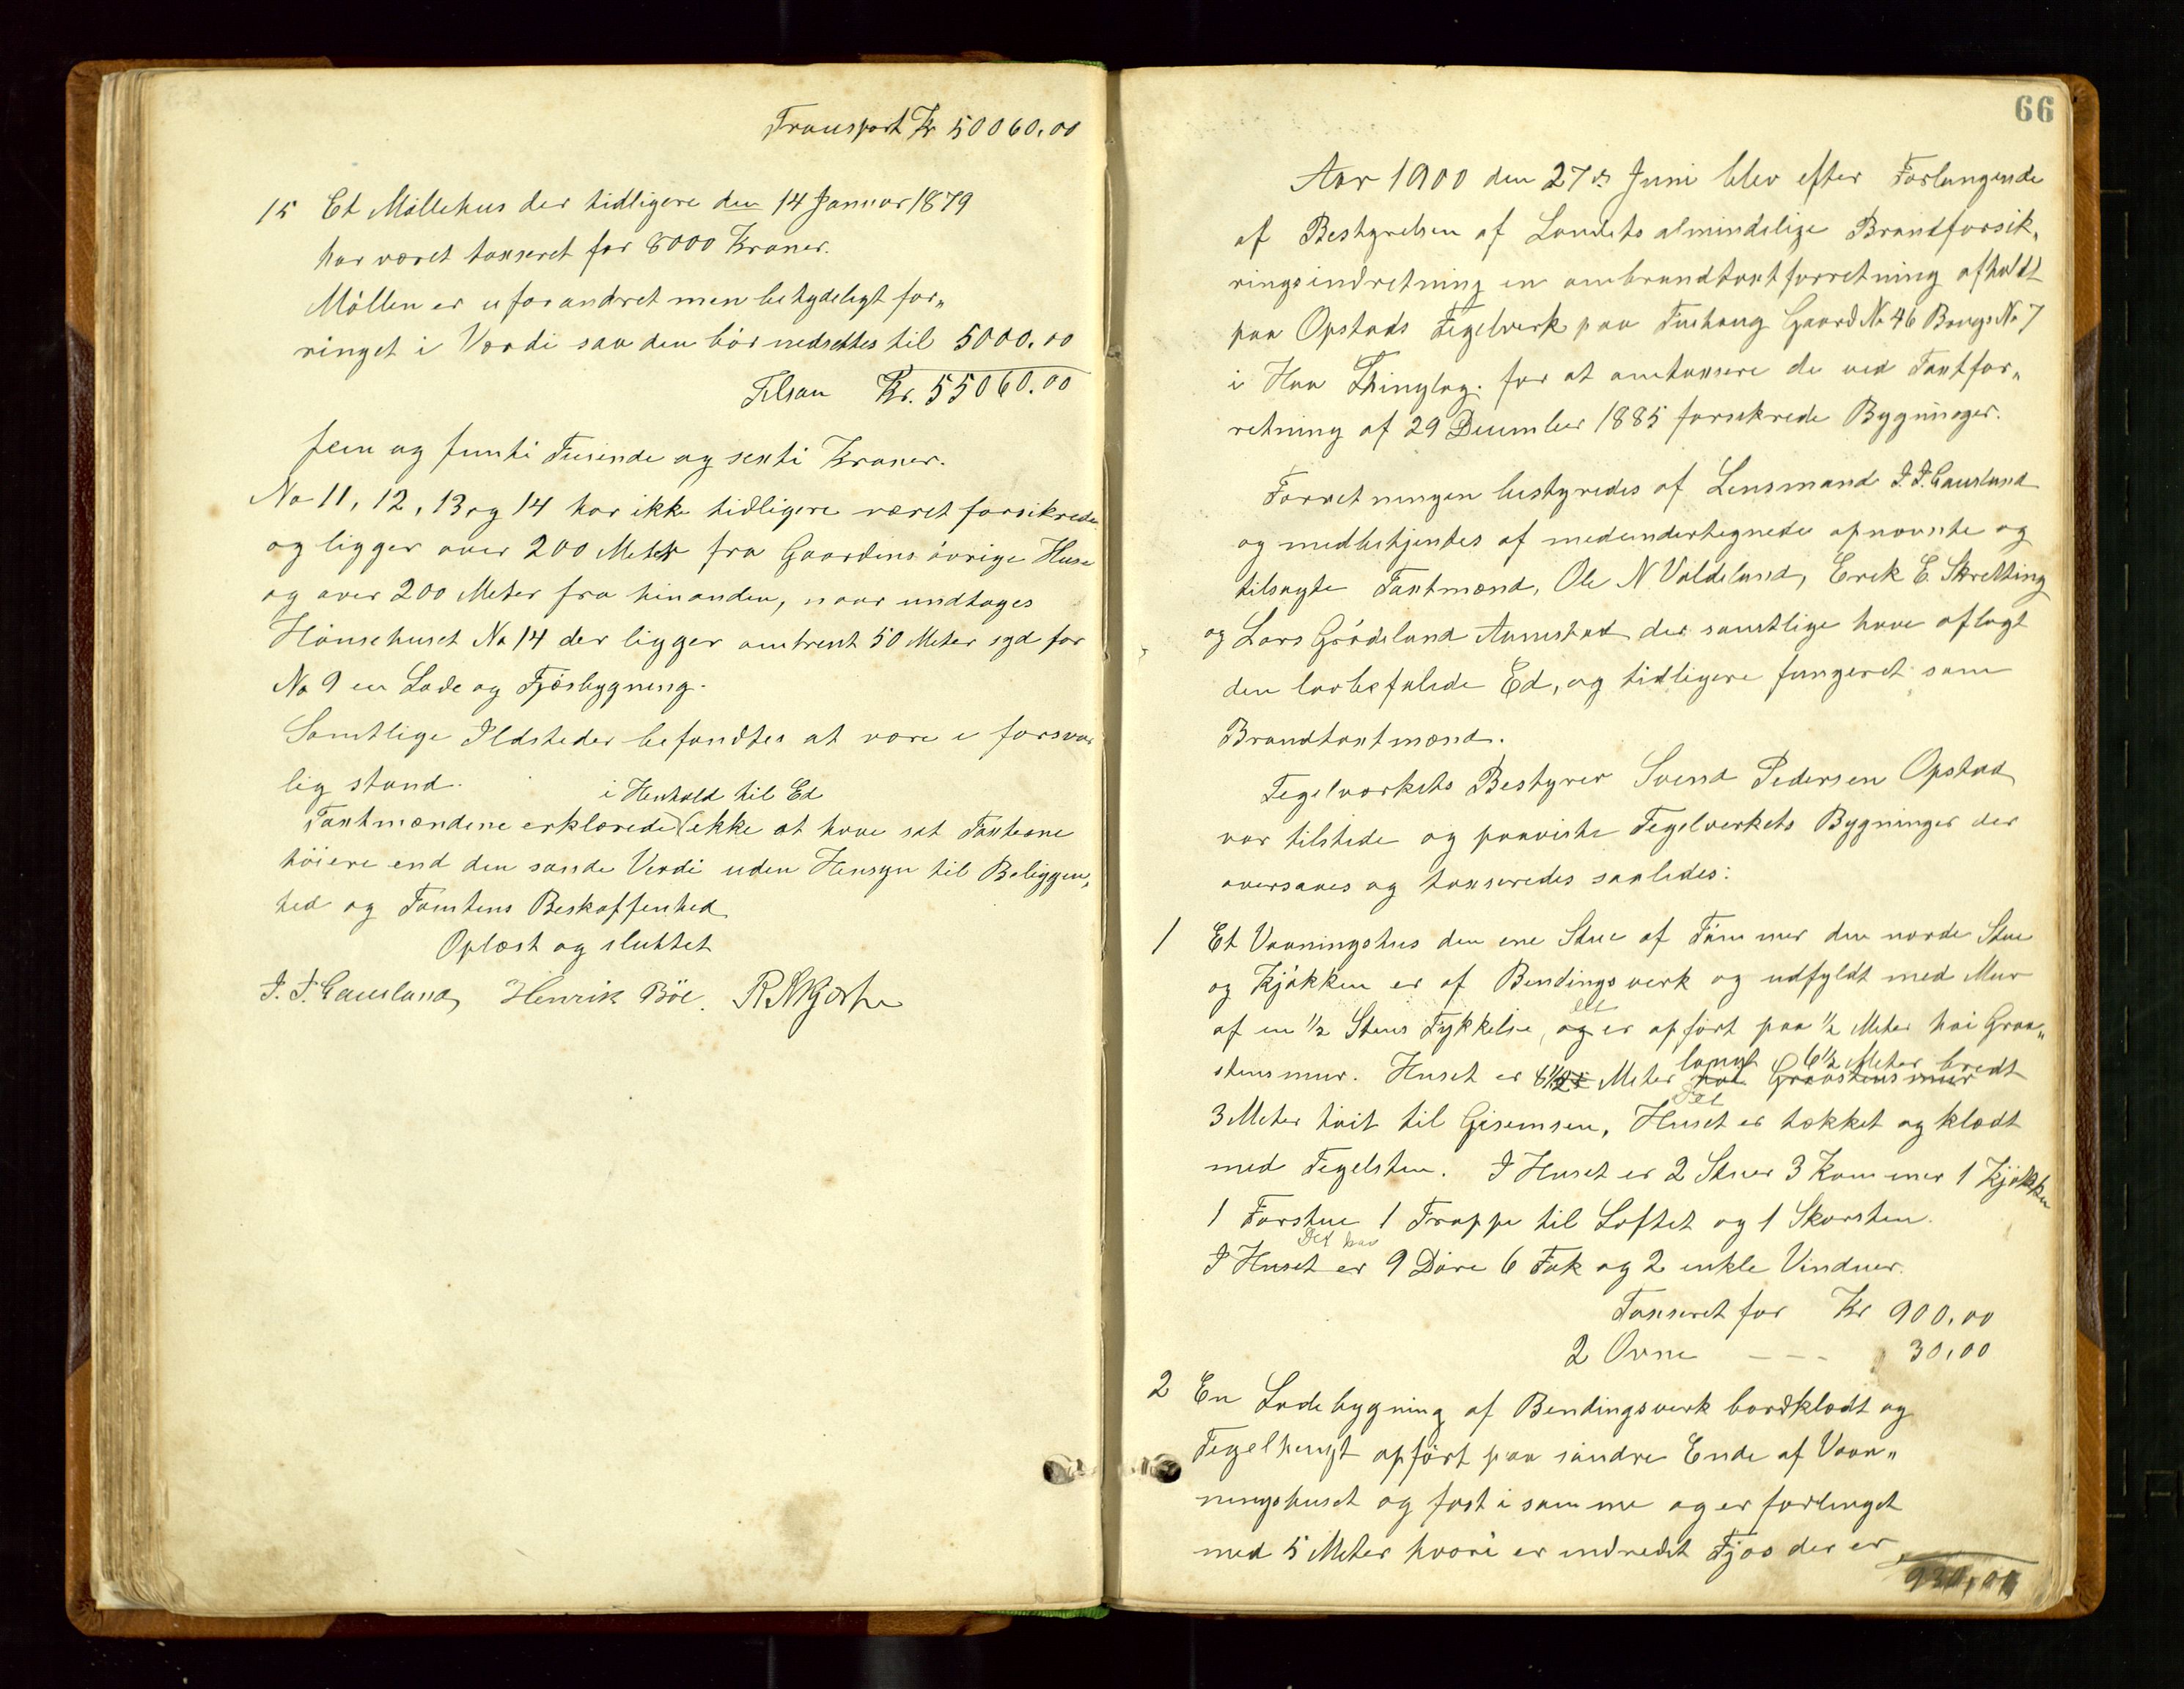 Transport Kr 50060.00
15 Et Möllehus der tidligere den 14 Januar 1879
har været taxseret for 8000 Kroner.
Möllen er uforandret men betydeligt for„
ringet i Værdi saa den bör nedsættes til 5000.00
Tilsam Kr. 55060.00
fem og femti Tusinde og sexti Kroner.
No 11, 12, 13 og 14 har ikke tidligere været forsikrede
og ligger over 200 Meter fra Gaardens övrige Huse
og over 200 Meter fra hinanden, naar undtages
Hönsehuset No 14 der ligger omtrent 50 Meter syd for
No 9 en Lade og Fjösbygning.
Samtlige Ildsteder befandtes at være i forsvar
lig stand.
i Henhold til Ed
Taxtmændene erklærede ikke at have sat Taxterne
höiere end den sande Verdi uden Hensyn til Beliggen„
hed og Tomtens Beskaffenhed
Oplæst og sluttet
J. T. Gausland, Henrik Böe.
66
Aar 1900 den 27de Juni blev efter Forlangende
af Bestyrelsen af Landets almindelige Brandforsik„
ringsindretning en ombrandtaxtforretning afholdt
paa Opstads Tegelverk paa Tuehaug Gaard No 46 Brugs No 7
i Haa Thinglag. for at omtaxsere de ved Taxtfor„
retning af 29 December 1885 forsikrede Bygninger.
Forretningen bestyredes af Lensmand J. T. Gausland
og medbetjentes af medundertegnede opnævnte og
tilsagte Taxtmænd, Ole N Valdeland, Erik E. Skretting
og Lars Grödeland Aunestad der samtlige have aflagt
den lovbefalede Ed, og tidligere fungeret som
Brandtaxtmænd.
Tegelværkets Bestyrer Svend Pedersen Opstad
var tilstede og paaviste Tegelverkets Bygninger der
oversaaes og taxseredes saaledes:
1 Et Vaaningshus den ene Stue af Tömmer den nordre Stue
og Kjökken er af Bendingsverk og udfyldt med Mur
af en 1/2 Stens Tykkelse, og er opfört paa 1/2 Meter höi Graa„
langt 6 1/2 Meter bredt
stensmur. Huset er 8 1/2 Meter höi Graastensmur
Det
3 Meter höit til Gisemsen, Huset er tækket og klædt
med Tegelsten. I Huset er 2 Stuer 3 Kammer 1 Kjökken
1 Forstue 1 Trappe til Loftet og 1 Skorsten.
Det har
I Huset er 9 Döre 6 Fak og 2 enkle Vinduer.
Taxseret for Kr 900.00
2 Ovne - - - 30.00
2 En Ladebygning af Bendingsverk bordklædt og
Tegelhengt opfört paa söndre Ende af Vaan„
ningshuset og fast i samme og er forlenget
med 5 Meter hvori er indredet Fjös der er
930,00